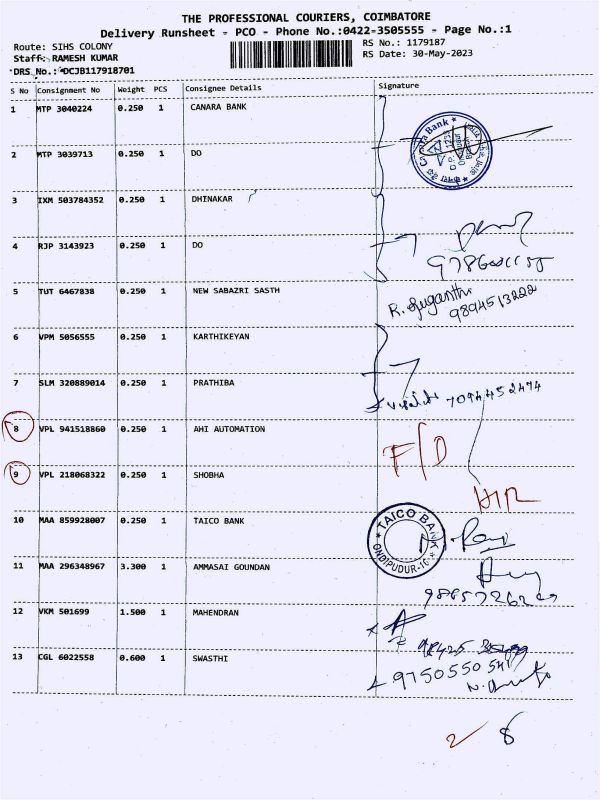 THE PROFESSIONAL COURIERS, COIMBATORE
Delivery Runsheet - PCO - Phone No.:0422-3505555 - Page No.:1
Route: SIHS COLONY
RS No.: 1179187
Staff: RAMESH KUMAR
RS Date: 30-May-2023
DRS No.: DCJB117918701
S No Consignment No Weight PCS Consignee Details Signature
1 MTP 3040224 0.250 1 CANARA BANK
Canara Bank
2 MTP 3039713 0.250 1 DO
3 IXM 503784352 0.250 1 DHINAKAR
4 RJP 3143923 0.250 1 DO
5 TUT 6467838 0.250 1 NEW SABAZRI SASTH
R. Suganthi
9894513222
6 VPM 5056555 0.250 1 KARTHIKEYAN
7 SLM 320889014 0.250 1 PRATHIBA
7094452474
8 VPL 941518860 0.250 1 AHI AUTOMATION
F/D
9 VPL 218068322 0.250 1 SHOBHA
10 MAA 859928007 0.250 1 TAICO BANK
TAICO BANK
ONDIPUDUR-16
11 MAA 296348967 3.300 1 AMMASAI GOUNDAN
12 VKM 501699 1.500 1 MAHENDRAN
13 CGL 6022558 0.600 1 SWASTHI
2/8